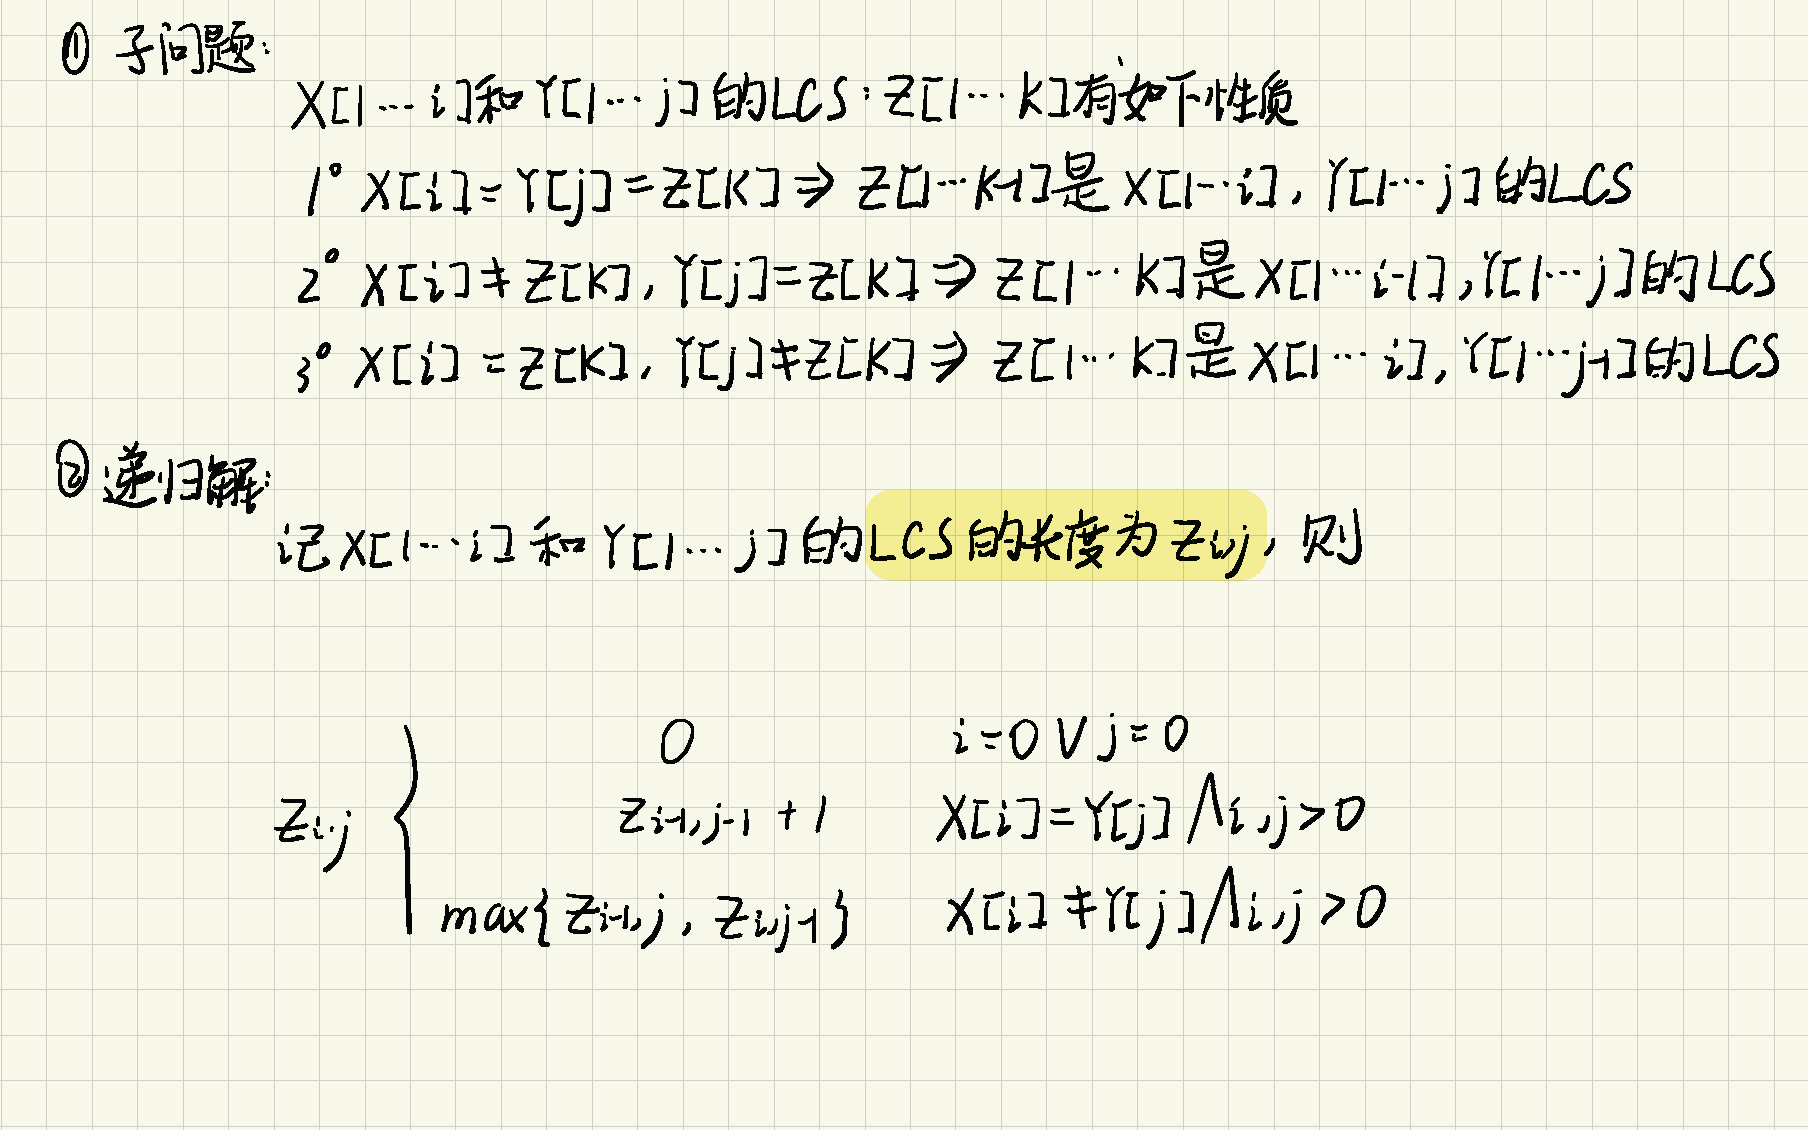 ① 子问题:
X[1…i]和Y[1…j]的LCS:Z[1…K]有如下性质
1° X[i]=Y[j]=Z[K]⇒Z[1…K-1]是X[1…i],Y[1…j]的LCS
2° X[i]≠Z[K],Y[j]=Z[K]⇒Z[1…K]是X[1…i-1],Y[1…j]的LCS
3° X[i]=Z[K],Y[j]≠Z[K]⇒Z[1…K]是X[1…i],Y[1…j-1]的LCS
② 递归解:
记X[1…i]和Y[1…j]的LCS的长度为Zi,j,则
0 i=0∨j=0
Zi,j { Zi-1,j-1+1 X[i]=Y[j]∧i,j>0
max{Zi-1,j, Zi,j-1} X[i]≠Y[j]∧i,j>0